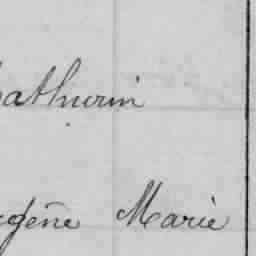 athurin
gène Marie